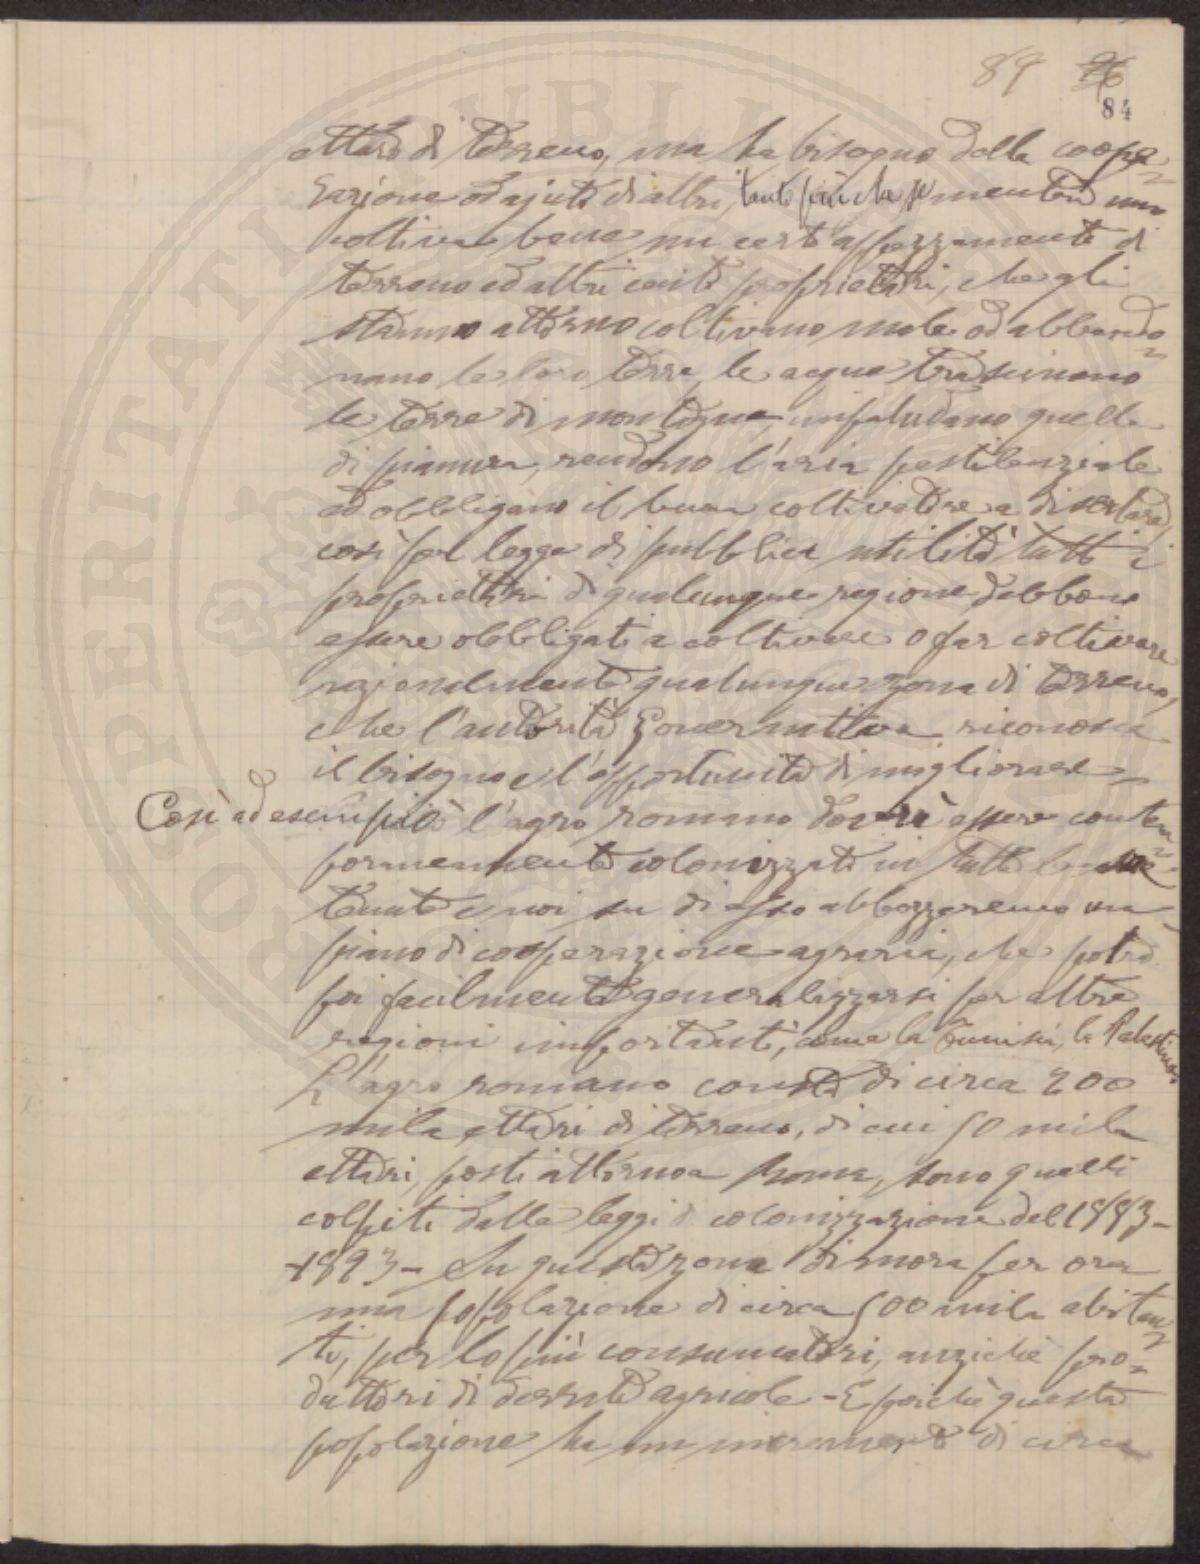 89 96
84
ettaro di terreno, ma ha bisogno della coope=
razione od ajuto di altri, tanto più che se mentre uno
coltiva bene un certo appezzamento di
terreno ed altri cento proprietari, che gli
stanno attorno coltivano male od abbando=
nano le loro terre, le acque trascinano
le terre di montagna, impaludano quelle
di pianura, rendono l'aria pestilenziale
ed obbligano il buon coltivatore a disertare,
così per legge di pubblica utilità tutti i
proprietari di qualunque regione debbono
essere obbligati a coltivare o far coltivare
razionalmente qualunque zona di terreno,
che l'autorità governativa riconosca
il bisogno e l'opportunità di migliorare
Così ad esempio l'agro romano dovrà essere contem=
poraneamente colonizzato in tutte le sue
tenute e noi su di esso abbozzeremo un
piano di cooperazione agraria, che potrà
poi facilmente generalizzarsi per altre
regioni importanti, come la Tunisia, la Palestina
L'agro romano consta di circa 200
mila ettari di terreno, di cui 50 mila
ettari, posti attorno a Roma, sono quelli
colpiti dalle leggi di colonizzazione del 1883-
1893- In questa zona dimora per ora
una popolazione di circa 500 mila abitan=
ti, per lo più consumatori, anziché pro=
duttori di derrate agricole - E poiché questa
popolazione ha un incremento di circa